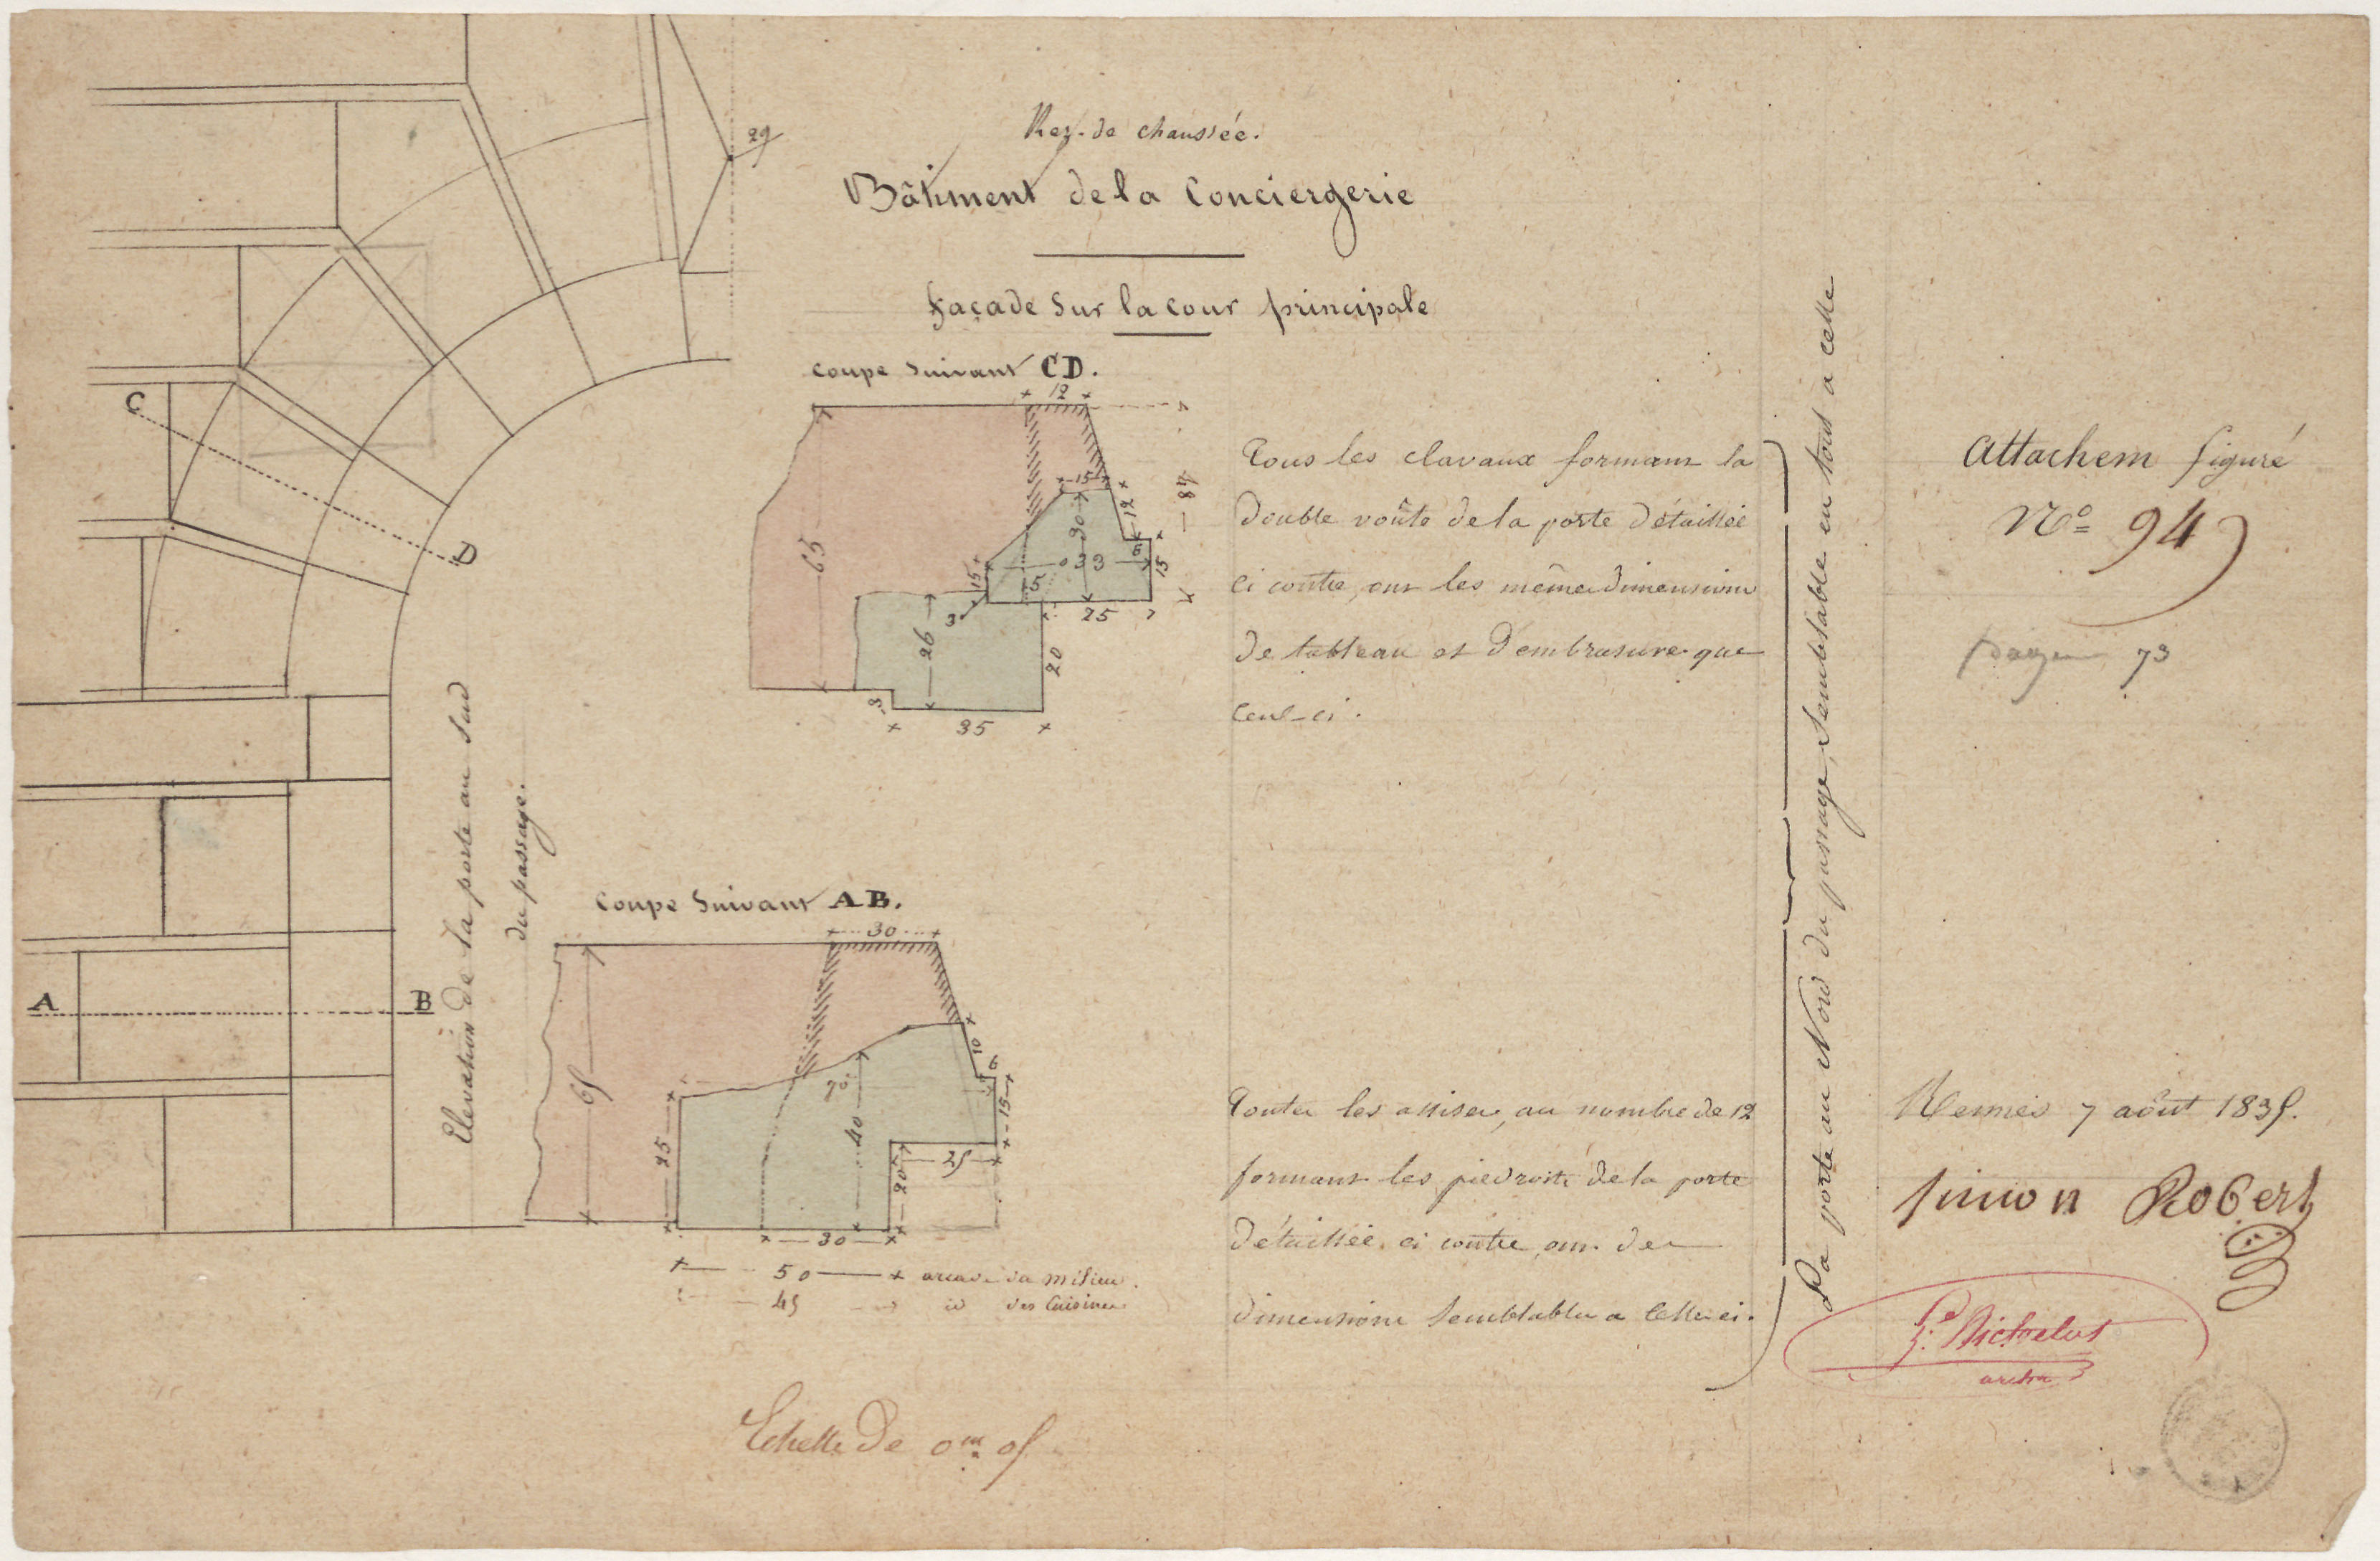 Rez-de chaussée.
Bâtiment de la Conciergerie
façade Sur la cour principale
coupe Suivant CD.
12
29
C
D
15
12
48
65
30
6
0 33
15
15
5
3
25
26
20
3
35
Tous les clavaux formant la
double voûte de la porte détaillée
ci contre, ont les mêmes dimensions
de tableau et d'embrasure que
ceux-ci.
La porte au Nord du passage, Semblable en tout a celle
Attachem figuré
No 94
73
Elevation de la porte au Sud
du passage.
Coupe Suivant AB.
30
A
B
65
10
6
70
40
15
25
25
20
30
50 arcade du milieu.
45 id des Cuisines
Toutes les assises, au nombre de 12
formant les piedroits de la porte
détaillée ci contre ont des
dimensions Semblables a Celles ci.
Rennes 7 août 1835.
Simon Robert
archte
Echelle De 0m 05